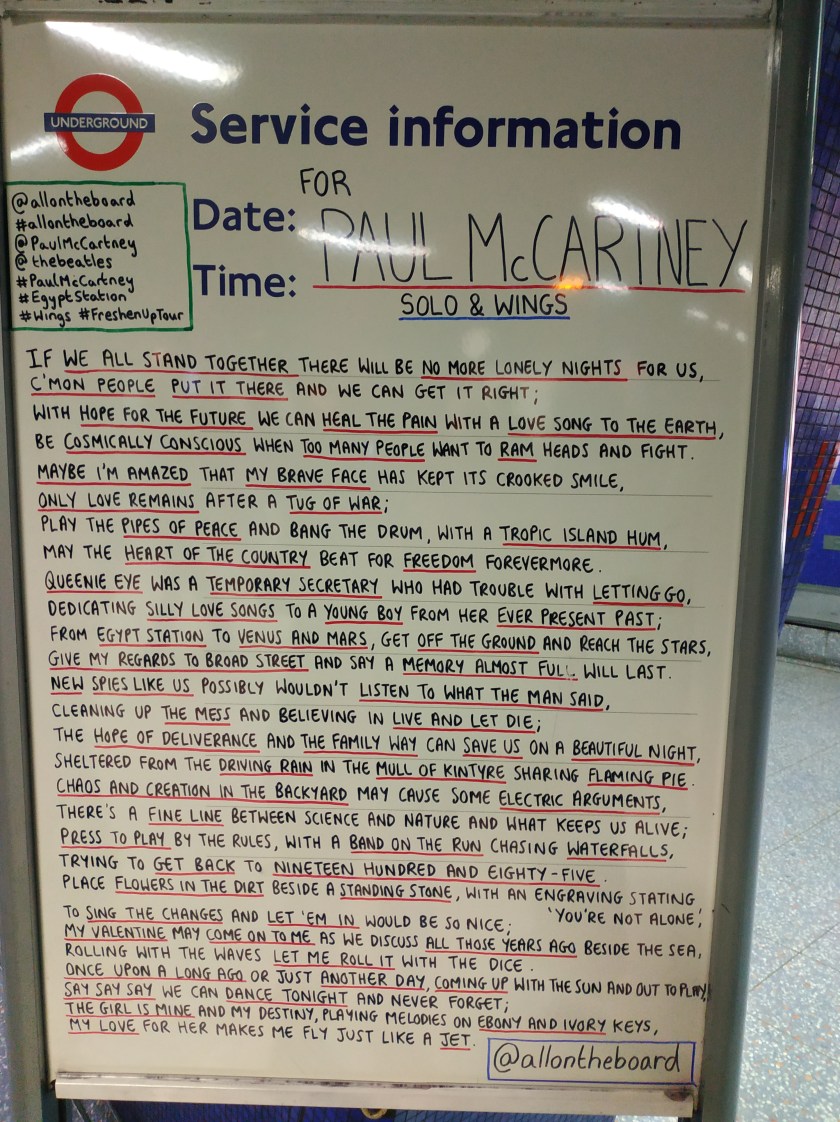 UNDERGROUND
Service information
@allontheboard
#allontheboard
@PaulMcCartney
@thebeatles
#PaulMcCartney
#EgyptStation
#Wings #FreshenUpTour
FOR
Date:
Time:
PAUL McCARTNEY
SOLO & WINGS
IF WE ALL STAND TOGETHER THERE WILL BE NO MORE LONELY NIGHTS FOR US,
C'MON PEOPLE PUT IT THERE AND WE CAN GET IT RIGHT;
WITH HOPE FOR THE FUTURE WE CAN HEAL THE PAIN WITH A LOVE SONG TO THE EARTH,
BE COSMICALLY CONSCIOUS WHEN TOO MANY PEOPLE WANT TO RAM HEADS AND FIGHT.
MAYBE I'M AMAZED THAT MY BRAVE FACE HAS KEPT ITS CROOKED SMILE,
ONLY LOVE REMAINS AFTER A TUG OF WAR;
PLAY THE PIPES OF PEACE AND BANG THE DRUM, WITH A TROPIC ISLAND HUM,
MAY THE HEART OF THE COUNTRY BEAT FOR FREEDOM FOREVERMORE.
QUEENIE EYE WAS A TEMPORARY SECRETARY WHO HAD TROUBLE WITH LETTING GO,
DEDICATING SILLY LOVE SONGS TO A YOUNG BOY FROM HER EVER PRESENT PAST;
FROM EGYPT STATION TO VENUS AND MARS, GET OFF THE GROUND AND REACH THE STARS,
GIVE MY REGARDS TO BROAD STREET AND SAY A MEMORY ALMOST FULL WILL LAST.
NEW SPIES LIKE US POSSIBLY WOULDN'T LISTEN TO WHAT THE MAN SAID,
CLEANING UP THE MESS AND BELIEVING IN LIVE AND LET DIE;
THE HOPE OF DELIVERANCE AND THE FAMILY WAY CAN SAVE US ON A BEAUTIFUL NIGHT,
SHELTERED FROM THE DRIVING RAIN IN THE MULL OF KINTYRE SHARING FLAMING PIE.
CHAOS AND CREATION IN THE BACKYARD MAY CAUSE SOME ELECTRIC ARGUMENTS,
THERE'S A FINE LINE BETWEEN SCIENCE AND NATURE AND WHAT KEEPS US ALIVE;
PRESS TO PLAY BY THE RULES, WITH A BAND ON THE RUN CHASING WATERFALLS,
TRYING TO GET BACK TO NINETEEN HUNDRED AND EIGHTY-FIVE.
PLACE FLOWERS IN THE DIRT BESIDE A STANDING STONE, WITH AN ENGRAVING STATING
'YOU'RE NOT ALONE',
TO SING THE CHANGES AND LET 'EM IN WOULD BE SO NICE;
MY VALENTINE MAY COME ON TO ME AS WE DISCUSS ALL THOSE YEARS AGO BESIDE THE SEA,
ROLLING WITH THE WAVES LET ME ROLL IT WITH THE DICE.
ONCE UPON A LONG AGO OR JUST ANOTHER DAY, COMING UP WITH THE SUN AND OUT TO PLAY,
SAY SAY SAY WE CAN DANCE TONIGHT AND NEVER FORGET;
THE GIRL IS MINE AND MY DESTINY, PLAYING MELODIES ON EBONY AND IVORY KEYS,
MY LOVE FOR HER MAKES ME FLY JUST LIKE A JET.
@allontheboard